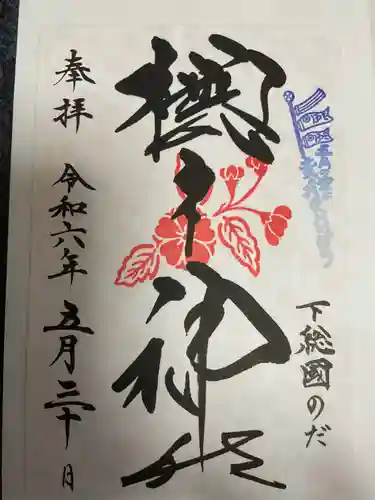 下総國のだ
櫻木神社
奉拝 令和六年五月三十日